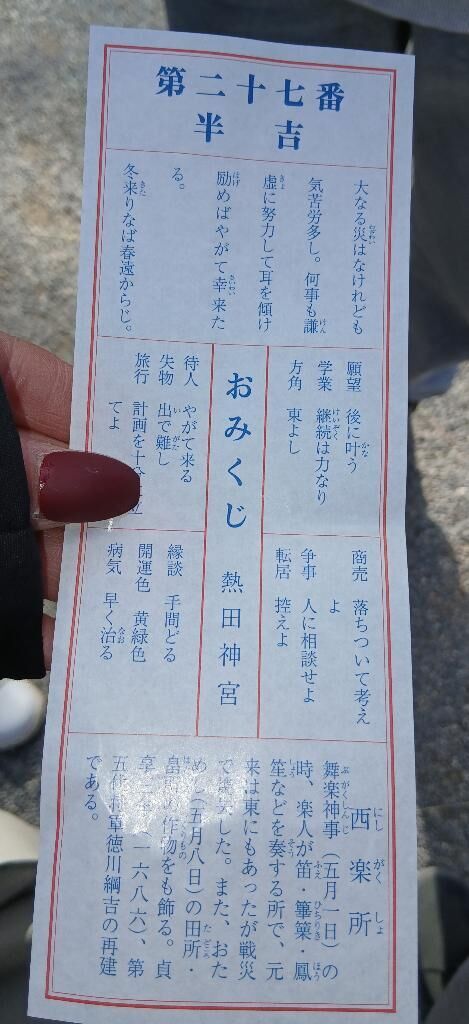 第二十七番
半吉
大なる災はなけれども
気苦労多し。何事も謙
虚に努力して耳を傾け
励めばやがて幸来た
る。
冬来りなば春遠からじ。
願望 後に叶う
学業 継続は力なり
方角 東よし
おみくじ 熱田神宮
待人 やがて来る
失物 出で難し
旅行 計画を十分
てよ
商売 落ちついて考え
よ
争事 人に相談せよ
転居 控えよ
縁談 手間どる
開運色 黄緑色
病気 早く治る
西楽所
舞楽神事（五月一日）の
時、楽人が笛・篳篥・鳳
笙などを奏する所で、元
来は東にもあったが戦災
で焼失した。また、おた
めし（五月八日）の田所・
畠所の作物をも飾る。貞
享三年（一六八六）、第
五代将軍徳川綱吉の再建
である。